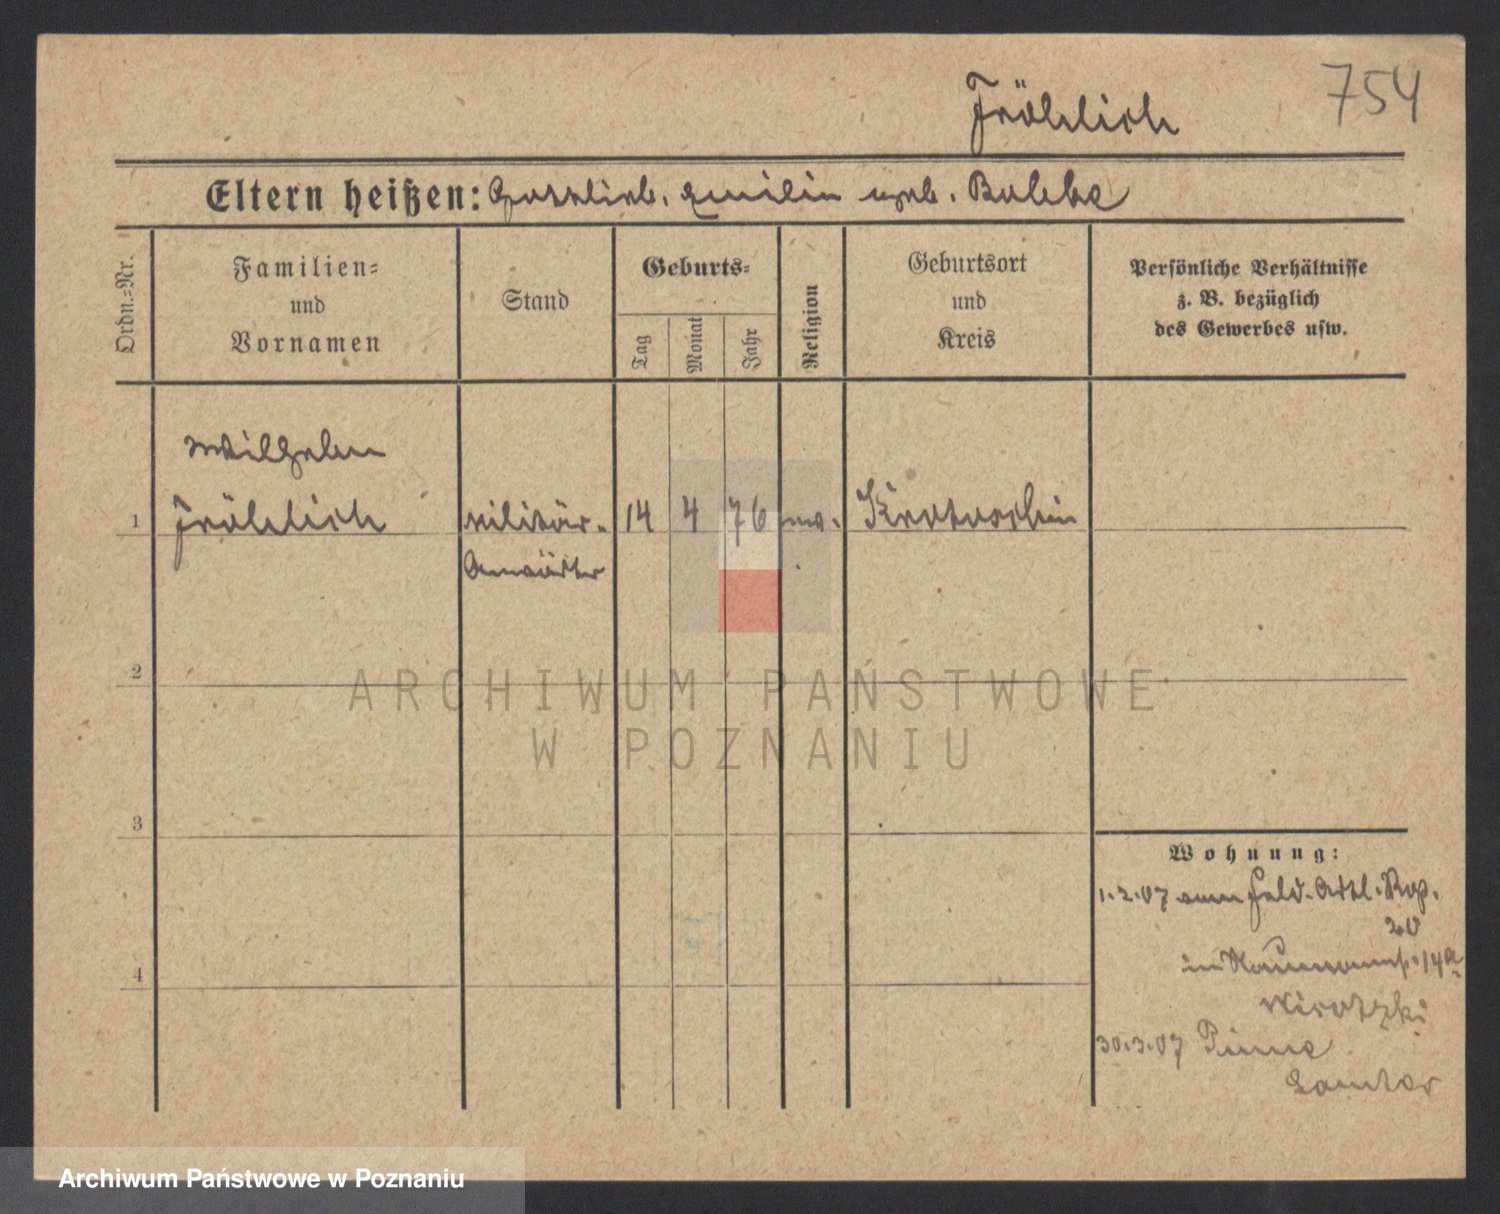 754
Fröhlich
Eltern heißen: Gottlieb, Emilie geb.
Ordn.=Nr.
Familien=
und
Vornamen
Stand
Geburts=
Tag
Monat
Jahr
Religion
Geburtsort
und
Kreis
Persönliche Verhältnisse
z. B. bezüglich
des Gewerbes usw.
Wilhelm
1 Fröhlich Militär- 14 4 76 ev. Krotoschin
Anwärter
2
ARCHIWUM PAŃSTWOWE
W POZNANIU
3
Wohnung:
1.2.07 vom Feld. Artl. Rg.
20
in Naumannstr. 14a
4
30.3.07 Pinne
Samter
Archiwum Państwowe w Poznaniu